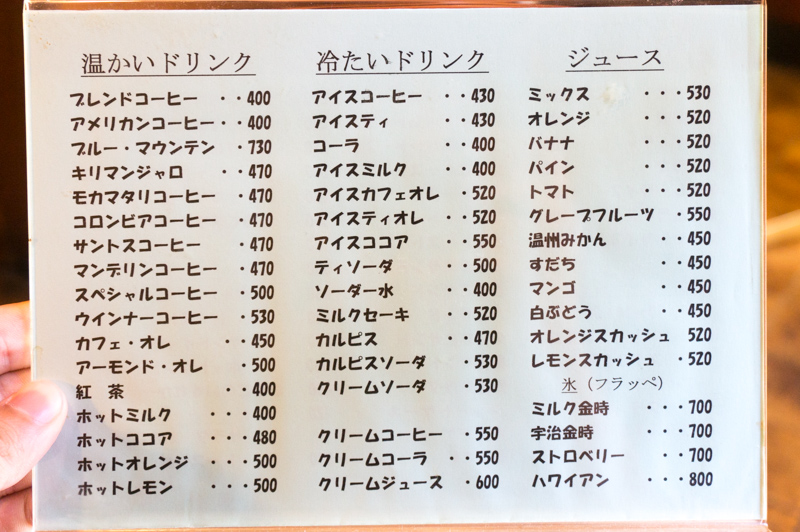 温かいドリンク
ブレンドコーヒー ・・400
アメリカンコーヒー・・400
ブルー・マウンテン ・730
キリマンジャロ ・・470
モカマタリコーヒー ・470
コロンビアコーヒー ・470
サントスコーヒー ・470
マンデリンコーヒー ・470
スペシャルコーヒー ・500
ウインナーコーヒー ・530
カフェ・オレ ・・450
アーモンド・オレ ・500
紅 茶 ・・400
ホットミルク ・・・400
ホットココア ・・・480
ホットオレンジ ・・・500
ホットレモン ・・・500
冷たいドリンク
アイスコーヒー ・・430
アイスティ ・・430
コーラ ・・400
アイスミルク ・・400
アイスカフェオレ ・520
アイスティオレ ・・520
アイスココア ・・550
ティソーダ ・・500
ソーダー水 ・・400
ミルクセーキ ・・520
カルピス ・・470
カルピスソーダ ・530
クリームソーダ ・530
クリームコーヒー ・550
クリームコーラ ・・550
クリームジュース ・600
ジュース
ミックス ・・・530
オレンジ ・・・520
バナナ ・・・520
パイン ・・・520
トマト ・・・520
グレープフルーツ ・550
温州みかん ・・450
すだち ・・450
マンゴ ・・450
白ぶどう ・・450
オレンジスカッシュ 520
レモンスカッシュ ・520
氷（フラッペ）
ミルク金時 ・・・700
宇治金時 ・・・700
ストロベリー ・・700
ハワイアン ・・・800